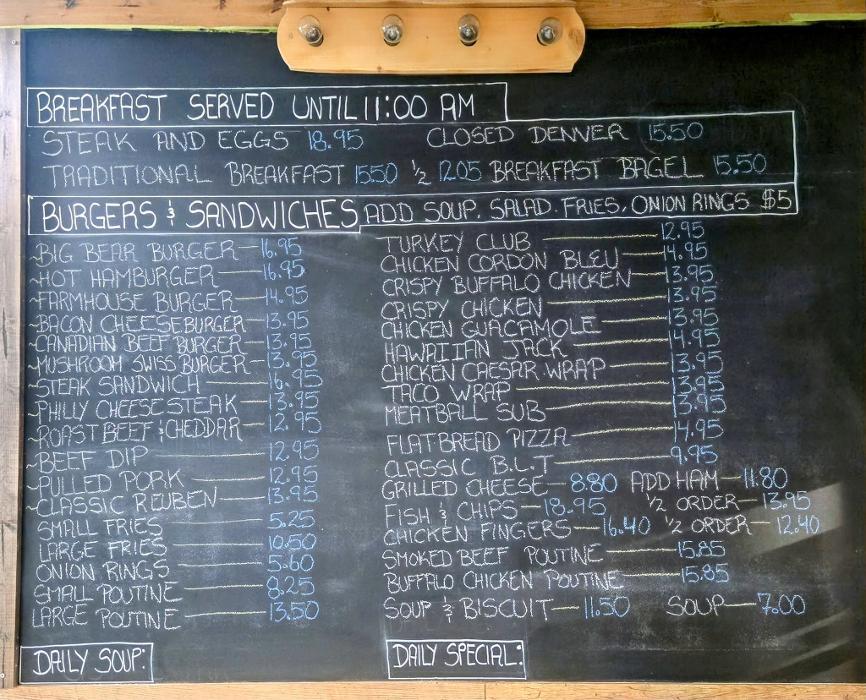 BREAKFAST SERVED UNTIL 11:00 AM
STEAK AND EGGS 18.95 CLOSED DENVER 15.50
TRADITIONAL BREAKFAST 15.50 ½ 12.05 BREAKFAST BAGEL 15.50
BURGERS & SANDWICHES ADD SOUP. SALAD. FRIES. ONION RINGS $5
~BIG BEAR BURGER—16.95
~HOT HAMBURGER—16.95
~FARMHOUSE BURGER—14.95
~BACON CHEESEBURGER—13.95
~CANADIAN BEEF BURGER—13.95
~MUSHROOM SWISS BURGER—13.95
~STEAK SANDWICH—16.95
~PHILLY CHEESE STEAK—13.95
~ROAST BEEF & CHEDDAR—12.95
~BEEF DIP—12.95
~PULLED PORK—12.95
~CLASSIC REUBEN—13.95
SMALL FRIES—5.25
LARGE FRIES—10.50
ONION RINGS—5.60
SMALL POUTINE—8.25
LARGE POUTINE—13.50
TURKEY CLUB—12.95
CHICKEN CORDON BLEU—14.95
CRISPY BUFFALO CHICKEN—13.95
CRISPY CHICKEN—13.95
CHICKEN GUACAMOLE—13.95
HAWAIIAN JACK—14.95
CHICKEN CAESAR WRAP—13.95
TACO WRAP—13.95
MEATBALL SUB—13.95
FLATBREAD PIZZA—14.95
CLASSIC B.L.T—9.95
GRILLED CHEESE—8.80 ADD HAM—11.80
FISH & CHIPS—18.95 ½ ORDER—13.95
CHICKEN FINGERS—16.40 ½ ORDER—12.40
SMOKED BEEF POUTINE—15.85
BUFFALO CHICKEN POUTINE—15.85
SOUP & BISCUIT—11.50 SOUP—7.00
DAILY SOUP:
DAILY SPECIAL: